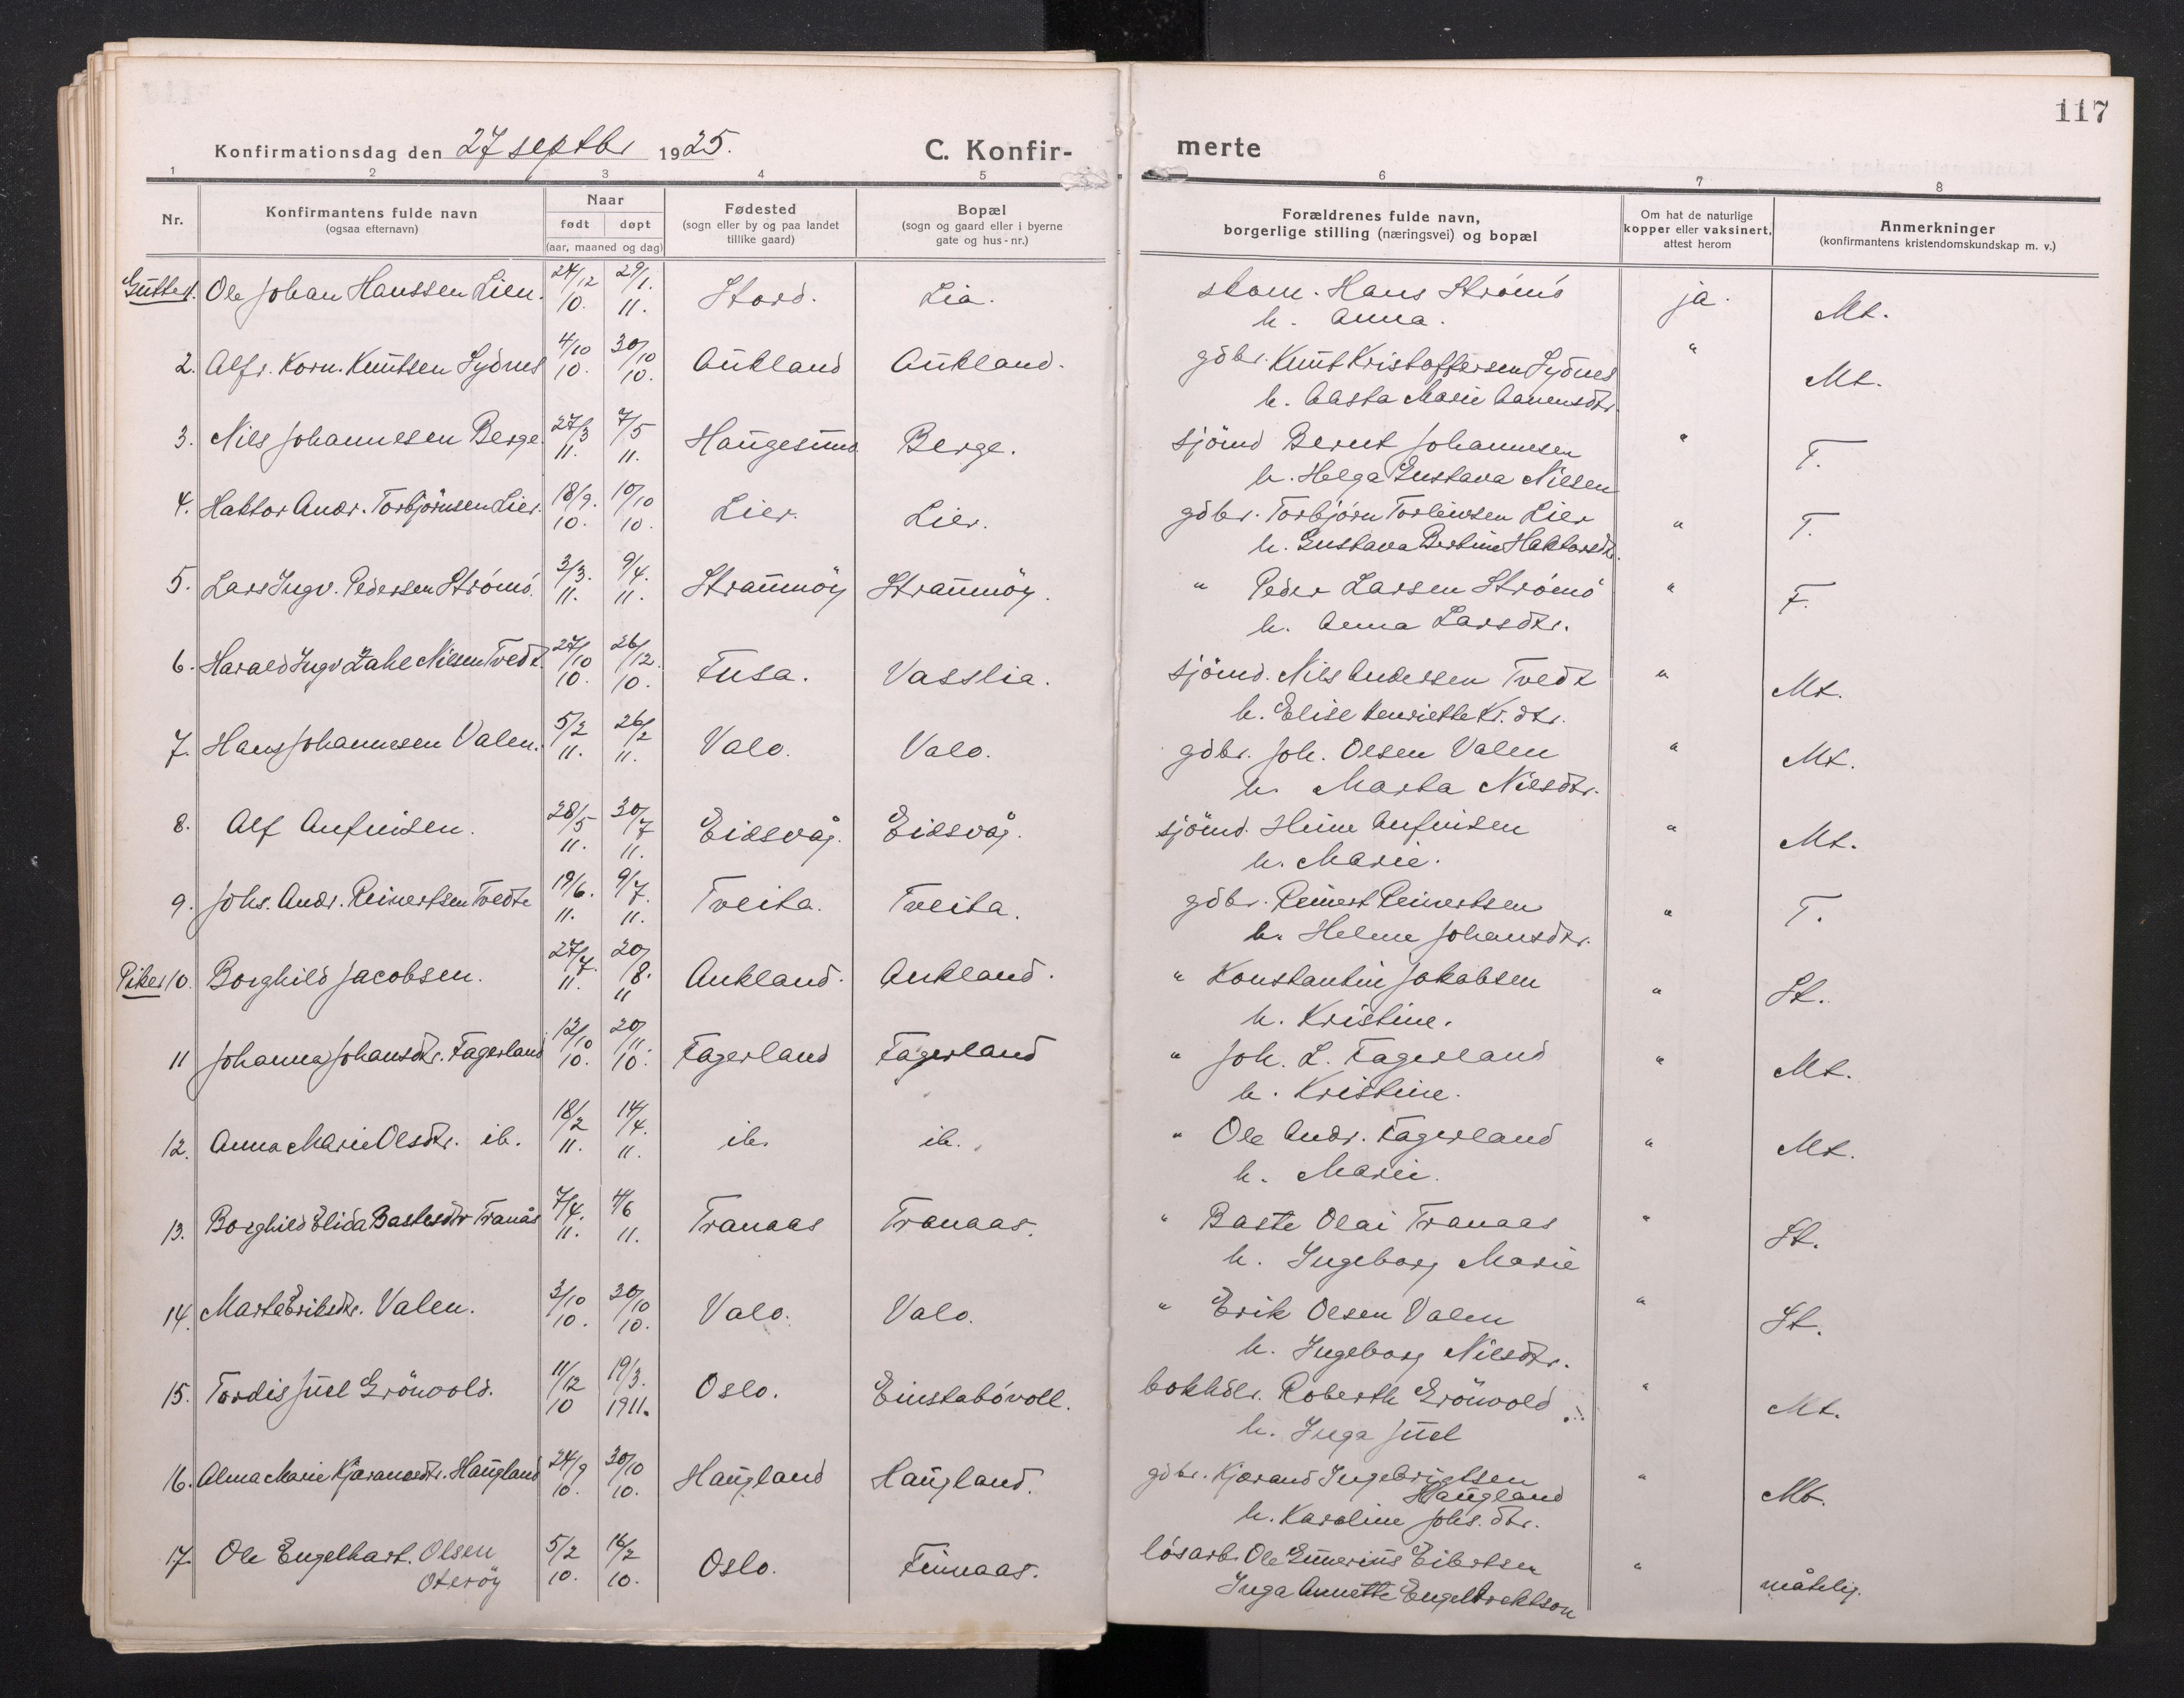 117
Konfirmationsdag den 27 septbr 1925. C. Konfir- merte
1 2 3 4 5 6 7 8
Nr. Konfirmantens fulde navn (ogsaa efternavn) Naar født døpt (aar, maaned og dag) Fødested (sogn eller by og paa landet tillike gaard) Bopæl (sogn og gaard eller i byerne gate og hus-nr.) Forældrenes fulde navn, borgerlige stilling (næringsvei) og bopæl Om hat de naturlige kopper eller vaksinert, attest herom Anmerkninger (konfirmantens kristendomskundskap m. v.)
Gutter 1. Ole Johan Hanssen Lien. 24/12 10. 29/1. 11. Stord. Lia. skom. Hans Strömö ja. Mt.
h. Anna.
2. Alfr. Korn. Knutsen Lydnes 4/10 10. 30/10 10. Aukland Aukland. gdbr. Knut Kristoffersen Lydnes " Mt.
h. Aasta Marie Aanensdtr.
3. Nils Johannesen Berge. 27/3 11. 7/5 11. Haugesund. Berge. sjömd Bernt Johannesen " T.
h. Helga Gustava Nilsen
4. Haktor Andr. Torbjörnsen Lier. 18/9. 10. 10/10 10. Lier. Lier. gdbr. Torbjörn Torleivsen Lier " T.
h. Gustava Bertine Haktorsdtr.
5. Lars Ingv. Pedersen Strömö. 3/3. 11. 9/4. 11. Straumöy Straumöy. " Peder Larsen Strömö " T.
h. Anna Larsdtr.
6. Harald Ingv Zahl Nilsen Tvedt. 27/10 10. 26/12. 10. Fusa. Vasslia. sjömd. Nils Andersen Tvedt " Mt.
h. Elise Henriette Kr. dtr.
7. Hans Johannesen Valen. 5/2 11. 26/2 11. Valo. Valo. gdbr. Joh. Olsen Valen " Mt.
h. Marta Nilsdtr.
8. Alf Anfinsen. 28/5 11. 30/7 11. Eidsvåg. Eidsvåg. sjömd. Heine Anfinsen " Mt.
h. Marie.
9. Johs. Andr. Reinertsen Tvedte 19/6. 11. 9/7. 11. Tveita. Tveita. gdbr. Reinert Reinertsen " T.
h. Helene Johansdtr.
Piker 10. Borghild Jacobsen. 27/7. 11. 20/8. 11 Aukland. Aukland. " Konstantin Jakobsen " St.
h. Kristine.
11 Johanna Johansdtr. Fagerland 12/10 10. 20/11. 10. Fagerland Fagerland " Joh. L. Fagerland " Mt.
h. Kristine.
12. Anna Marie Olsdtr. ib. 18/2 11. 14/4. 11. ib. ib. " Ole Andr. Fagerland " Mt.
h. Marie.
13. Borghild Elida Bastesdtr Tranås 7/4. 11. 4/6 11. Tranaas Tranaas. " Baste Olai Tranaas " St.
h. Ingeborg Marie
14. Marta Eriksdtr. Valen. 3/10 10. 30/10 10. Valo. Valo. " Erik Olsen Valen " St.
h. Ingeborg Nilsdtr.
15. Tordis Juel Grönvold. 11/12 10 19/3. 1911. Oslo. Einstabövoll. bokhdlr. Roberth Grönvold " Mt.
h. Inga Juel
16. Alma Marie Kjærandsdtr. Haugland 24/9 10. 30/10 10. Haugland Haugland. gdbr. Kjærand Ingebrigtsen Haugland " Mt.
h. Karoline Johs. dtr.
17. Ole Engelhart. Olsen Oteröy 5/2 10. 16/2 10. Oslo. Finnaas. lösarb. Ole Eibertsen " måtelig.
Inga Annette Engelbrektson